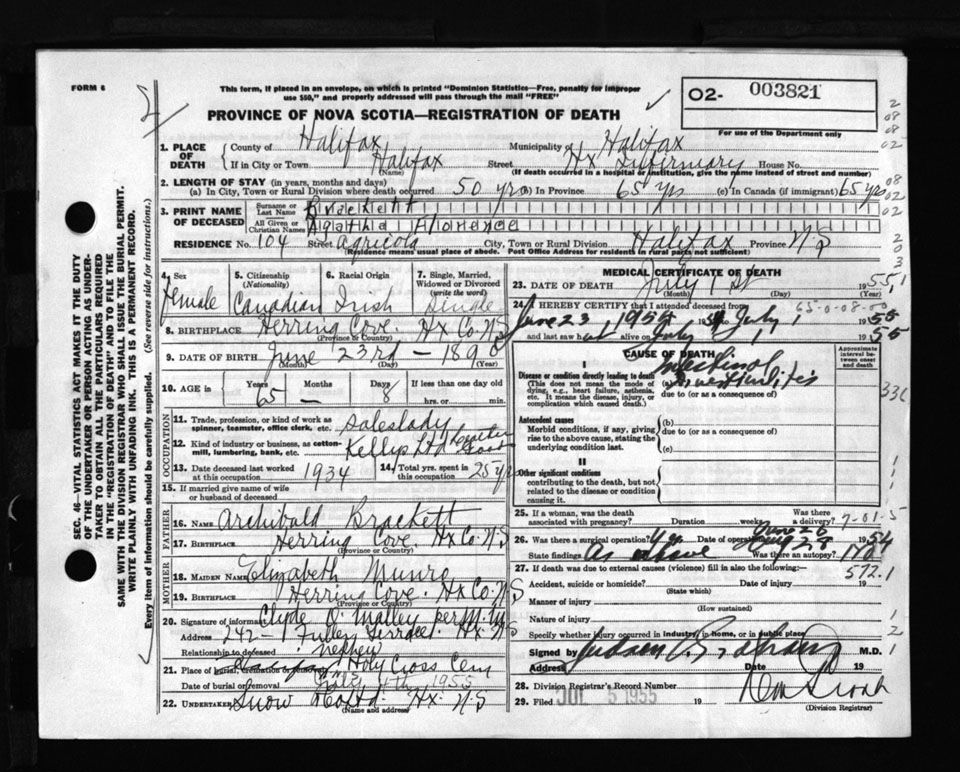 FORM 6
This form, if placed in an envelope, on which is printed "Dominion Statistics—Free, penalty for improper
use $50," and properly addressed will pass through the mail "FREE"
O2- 003821
For use of the Department only
PROVINCE OF NOVA SCOTIA—REGISTRATION OF DEATH
1. PLACE OF DEATH
County of Halifax Municipality of Halifax
If in City or Town Halifax (Name) Street Hx Infirmary House No.
(If death occurred in a hospital or institution, give the name instead of street and number)
2. LENGTH OF STAY (in years, months and days)
(a) In City, Town or Rural Division where death occurred 50 yrs (b) In Province 65 yrs (c) In Canada (if immigrant) 65 yrs
3. PRINT NAME OF DECEASED
Surname or Last Name Brackett
All Given or Christian Names Agatha Florence
RESIDENCE No. 104 Street Agricola City, Town or Rural Division Halifax Province N S
(Residence means usual place of abode. Post Office Address for residents in rural parts not sufficient)
4. Sex
female
5. Citizenship (Nationality)
Canadian
6. Racial Origin
Irish
7. Single, Married, Widowed or Divorced (write the word)
Single
8. BIRTHPLACE Herring Cove. Hx Co. N S
(Province or Country)
9. DATE OF BIRTH June 23rd – 1890
(Month) (Day) (Year)
10. AGE in Years 65 Months — Days 8 If less than one day old hrs. or min.
OCCUPATION
11. Trade, profession, or kind of work as spinner, teamster, office clerk, etc. saleslady
12. Kind of industry or business, as cotton-mill, lumbering, bank, etc. Kellys Ltd
13. Date deceased last worked at this occupation 1934
14. Total yrs. spent in this occupation 25 yrs
15. If married give name of wife or husband of deceased
FATHER
16. NAME Archibald Brackett
17. BIRTHPLACE Herring Cove. Hx Co. N S
(Province or Country)
MOTHER
18. MAIDEN NAME Elizabeth Munro
19. BIRTHPLACE Herring Cove. Hx Co. N S
(Province or Country)
20. Signature of informant Clyde O'Malley per
Address 242–1 Fuller Terrace. Hx. N S
Relationship to deceased nephew
21. Place of burial, cremation or Holy Cross Cem
Date of burial or removal July 4th 1955
22. UNDERTAKER Snow Co Ltd. Hx. N. S
(Name and address)
MEDICAL CERTIFICATE OF DEATH
23. DATE OF DEATH July 1 st 1955
(Month) (Day)
24. I HEREBY CERTIFY that I attended deceased from
June 23 1955 July 1 1955
and last saw h alive on July 1 1955
65-0-08-
CAUSE OF DEATH
Approximate interval between onset and death
I
Disease or condition directly leading to death
(This does not mean the mode of dying, e.g., heart failure, asthenia, etc. It means the disease, injury, or complication which caused death.)
(a) Intestinal
due to (or as a consequence of)
Antecedent causes
Morbid conditions, if any, giving rise to the above cause, stating the underlying condition last.
(b)
due to (or as a consequence of)
(c)
II
Other significant conditions contributing to the death, but not related to the disease or condition causing it.
25. If a woman, was the death associated with pregnancy? Duration weeks Was there a delivery?
7-01-5
26. Was there a surgical operation? Yes Date of operation June 26 1954
State findings As above Was there an autopsy? No
27. If death was due to external causes (violence) fill in also the following:—
572.1
Accident, suicide or homicide? Date of injury 19
(State which)
Manner of injury
(How sustained)
Nature of injury
Specify whether injury occurred in industry, in home, or in public place
Signed by M.D.
Address Date 19
28. Division Registrar's Record Number
29. Filed JUL 5 1955 19
(Division Registrar)
SEC. 46—VITAL STATISTICS ACT MAKES IT THE DUTY
OF THE UNDERTAKER OR PERSON ACTING AS UNDER-
TAKER TO OBTAIN ALL THE PARTICULARS REQUIRED
IN THE "REGISTRATION OF DEATH" AND TO FILE THE
SAME WITH THE DIVISION REGISTRAR WHO SHALL ISSUE THE BURIAL PERMIT.
WRITE PLAINLY WITH UNFADING INK. THIS IS A PERMANENT RECORD.
Every item of information should be carefully supplied. (See reverse side for instructions.)